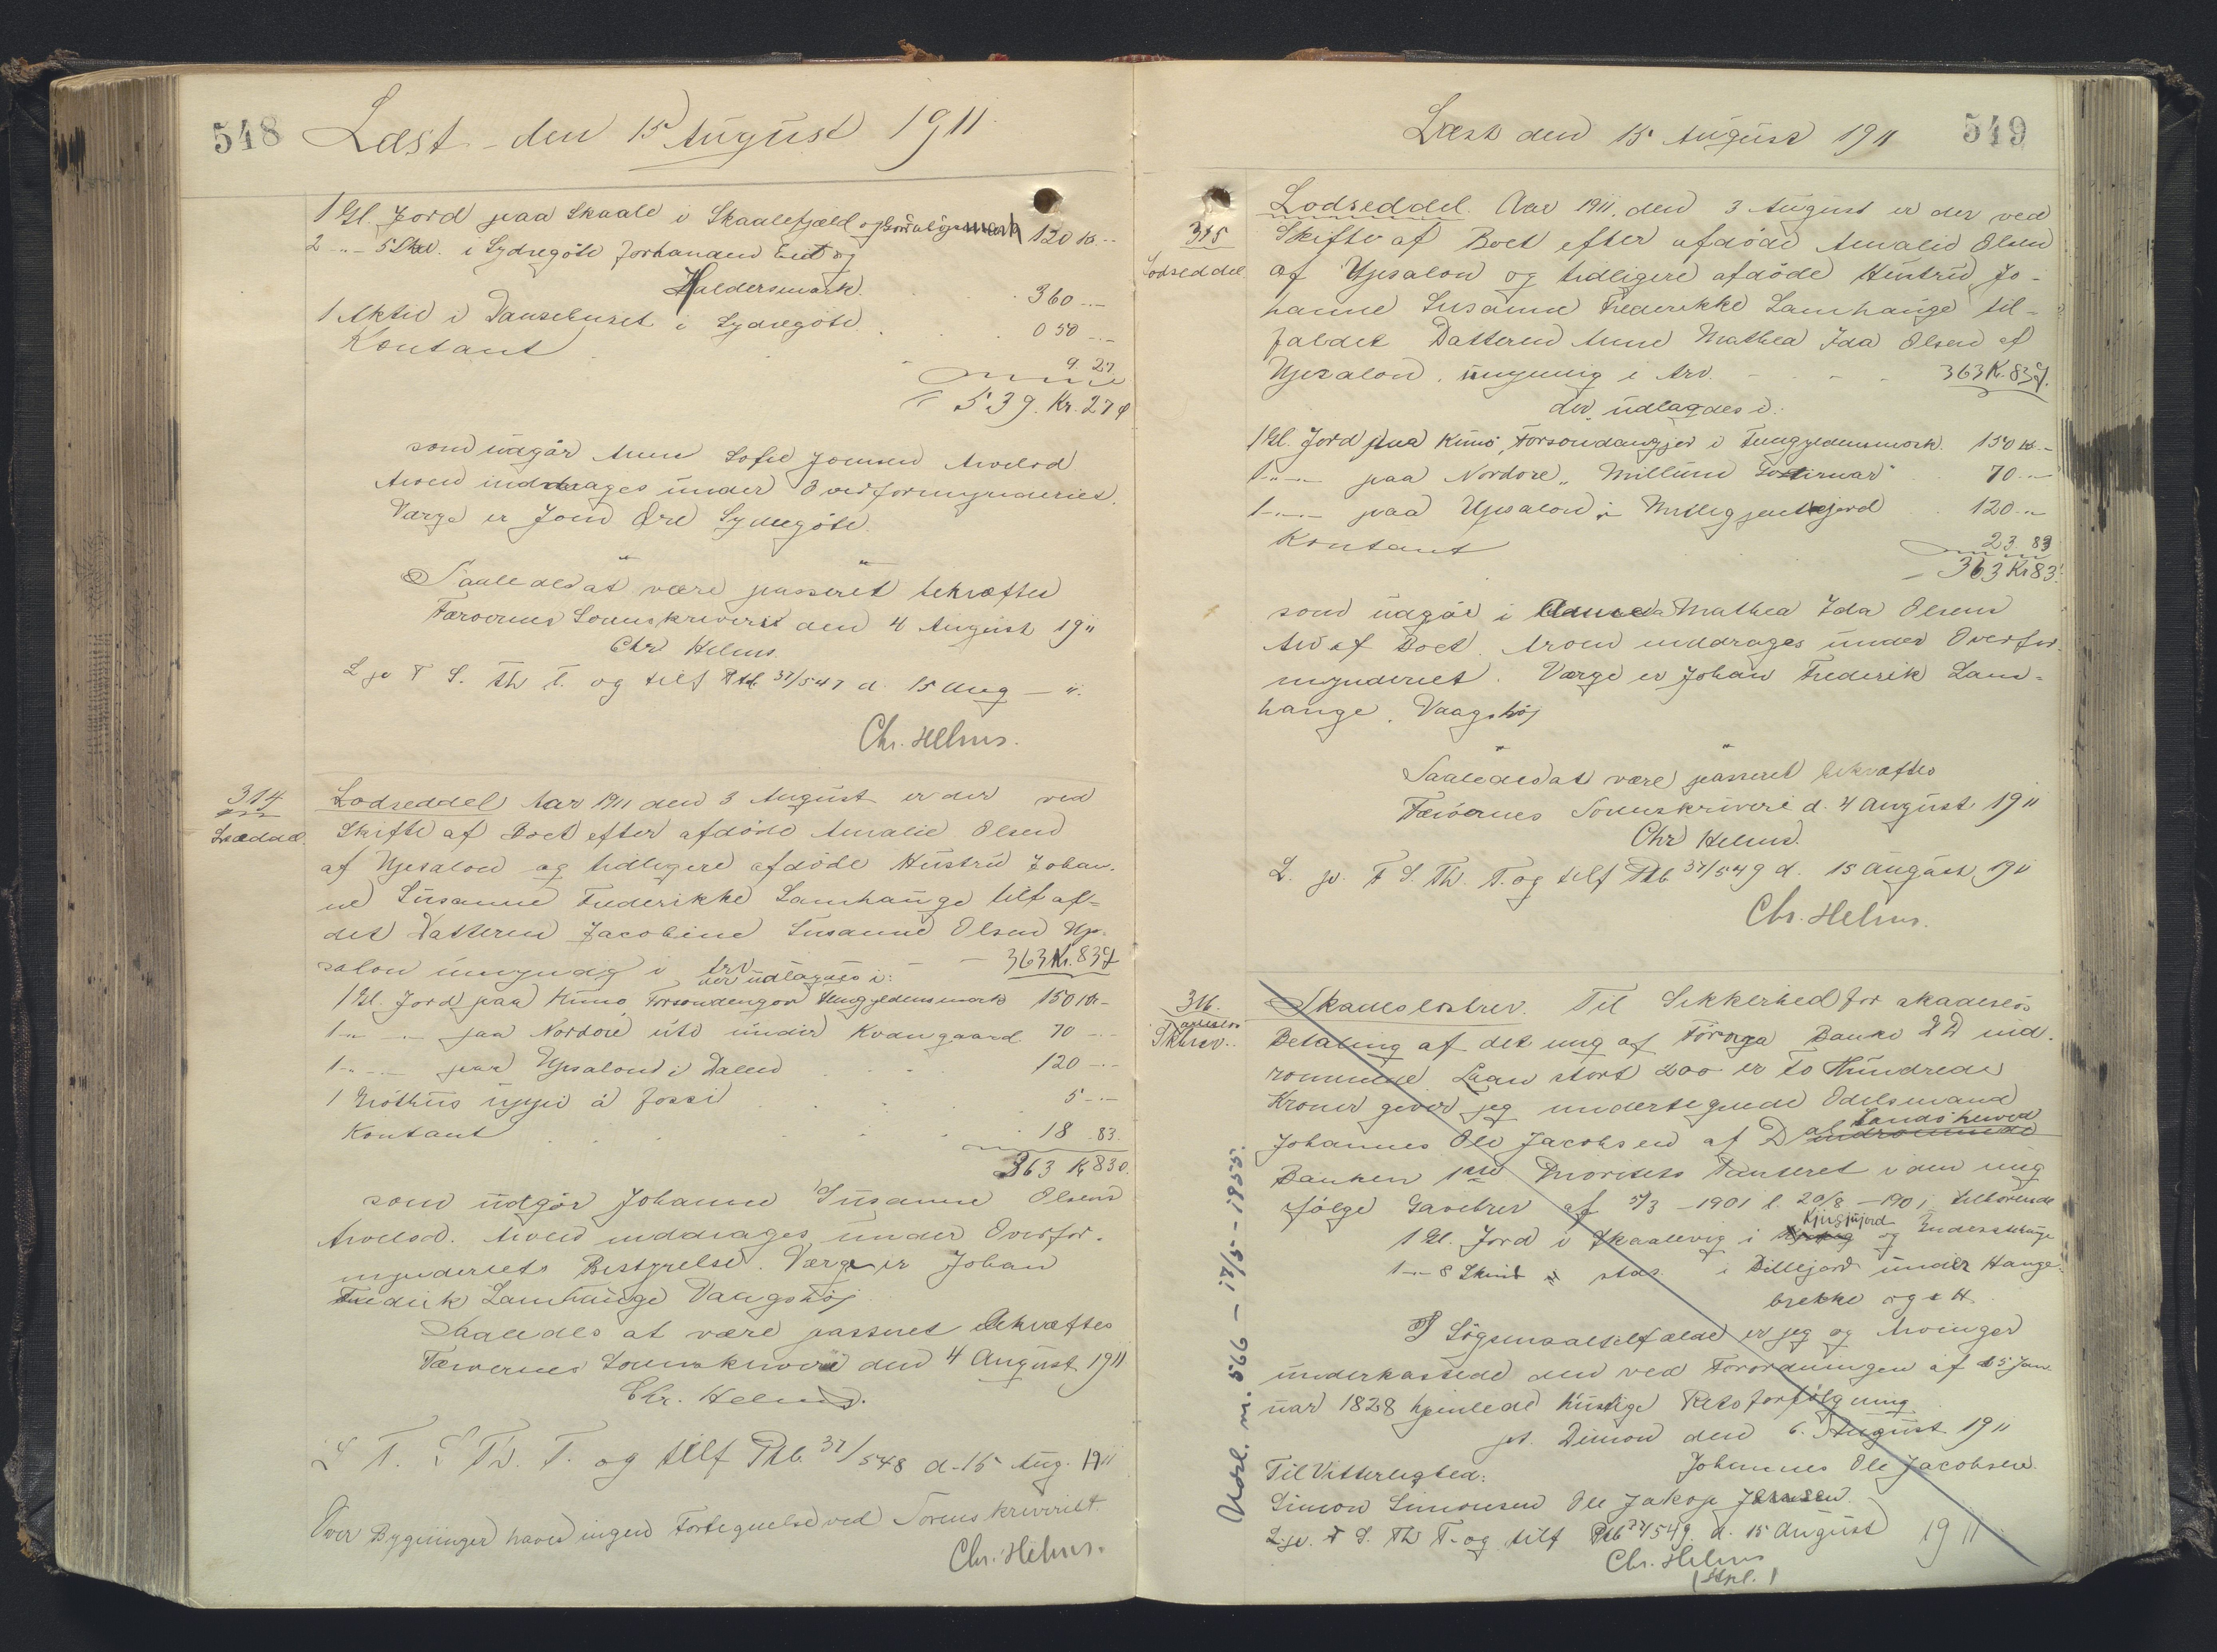 548 Læst den 15 August 1911
1 Gl. Jord paa Skaale i Skaalefjæld og 120 Kr
2 " - 5 Skd. i Sydregöte forhanden Eid og
Haldersmark. 360 "
1 Aktie i Dansehuset i Sydregöte 0 50 "
Kontant 9. 27
539. Kr. 27 ø
som udgör Anne Sofie Joensen Arvelod
Arven inddrages under Overformynderiet.
Værge er Joen Øre Sydregöte.
Saaledes at være passeret bekræftes
Færöernes Sorenskriveri den 4 August 1911
Chr Helms.
L p F S. Th T. og tilf Ptb 37/547 d. 15 Aug – 11.
Chr. Helms.
314
Lodseddel Aar 1911 den 3 August er der ved
Skifte af Boet efter afdöde Amalie Olsen
af Upsalon og tidligere afdöde Hustru Johan-
ne Susanne Frederikke Lamhauge tilfal-
det Datteren Jacobine Susanne Olsen Up-
salon umyndig i Arv 363 Kr. 83 Ø
der udlagdes i:
1 Gl. Jord paa Kunö, Forsondengor Tungyldensmark 150 Kr -
1 " - " - paa Nordöre úti undir Kvangaard. 70 - "
1 - " - " paa Upsalon i Dalen 120 - "
1 Gróthús uppi á fossi 5 - "
Kontant 18 . 83.
363 Kr 83 Ø.
som udgör Johanne Susanne Olsens
Arvelod. Arven inddrages under Overfor-
mynderiets Bestyrelse. Værge er Johan
Frederik Lamhauge Vaagshöj.
Saaledes at være passeret bekræftes
Færöernes Sorenskriveri den 4 August 1911
Chr. Helms.
L T. S Th. T. og tilf Ptb. 37/548 d. 15 Aug. 1911
Over Bygninger haves ingen Fortegnelse ved Sorenskriveriet
Chr. Helms.
Læst den 15 August 1911 549
315
Lodseddel
Lodseddel. Aar 1911, den 3 August er der ved
Skifte af Boet efter afdöde Amalie Olsen
af Upsalon og tidligere afdöde Hustru Jo-
hanne Susanne Frederikke Lamhauge til-
faldet Datteren Anne Mathea Ida Olsen af
Upsalon, umyndig i Arv. 363 Kr. 83 Ø.
der udlagdes i:
1 Gl. Jord paa Kunö, Forsondangjor i Tungyldensmork. 150 Kr. -
1 - " - paa Nordöre, Millum Gostirnar 70 - "
1 - " - paa Upsalon i jord 120 - "
Kontant 23. 83
363 Kr 83.
som udgör i Anne Mathea Ida Olsens
Arv af Boet. Arven inddrages under Overfor-
mynderiet. Værge er Johan Frederik Lam-
hauge, Vaagshöj
Saaledes at være passeret bekræftes
Færöernes Sorenskriveri d. 4 August 1911
Chr Helms.
L. p. F S. Th. T. og tilf Ptb 37/549 d. 15 August 1911
Chr. Helms.
316.
Skadeslosbrev. Til Sikkerhed for skadeslös
Betaling af det mig af Föroya Banki I D ind-
rommede Laan stort 200 er to Hundrede
Kroner giver jeg undertegnede Odelsmand
Johannes Ole Jacobsen af Dal Sandshered
Banken 1ste Prioritets Panteret i den mig
ifölge Gavebrev af 5/3 - 1901 l. 20/8 - 1901 tilhörende
1 Gl. Jord i Skaalevig i Kjigjujord og
1 - " 8 Skind " stas. i Dillejord under Hange-
brekke og s H.
I Sögsmaalstilfælde er jeg og Arvinger
underkastede den ved Forordningen af 25 Jan-
uar 1828 hjemlede hurtige Retsforfölgning
pt. Dimon den 6. August 1911
Til Vitterlighed: Johannes Ole Jacobsen.
Simon Simonsen Ole Jakop Jensen.
L. p. F S. Th T. og tilf Ptb 37/549. d. 15 August 1911
Chr. Helms
(Stpl.)
Udsl. nr. 566 – 17/5 - 1955.